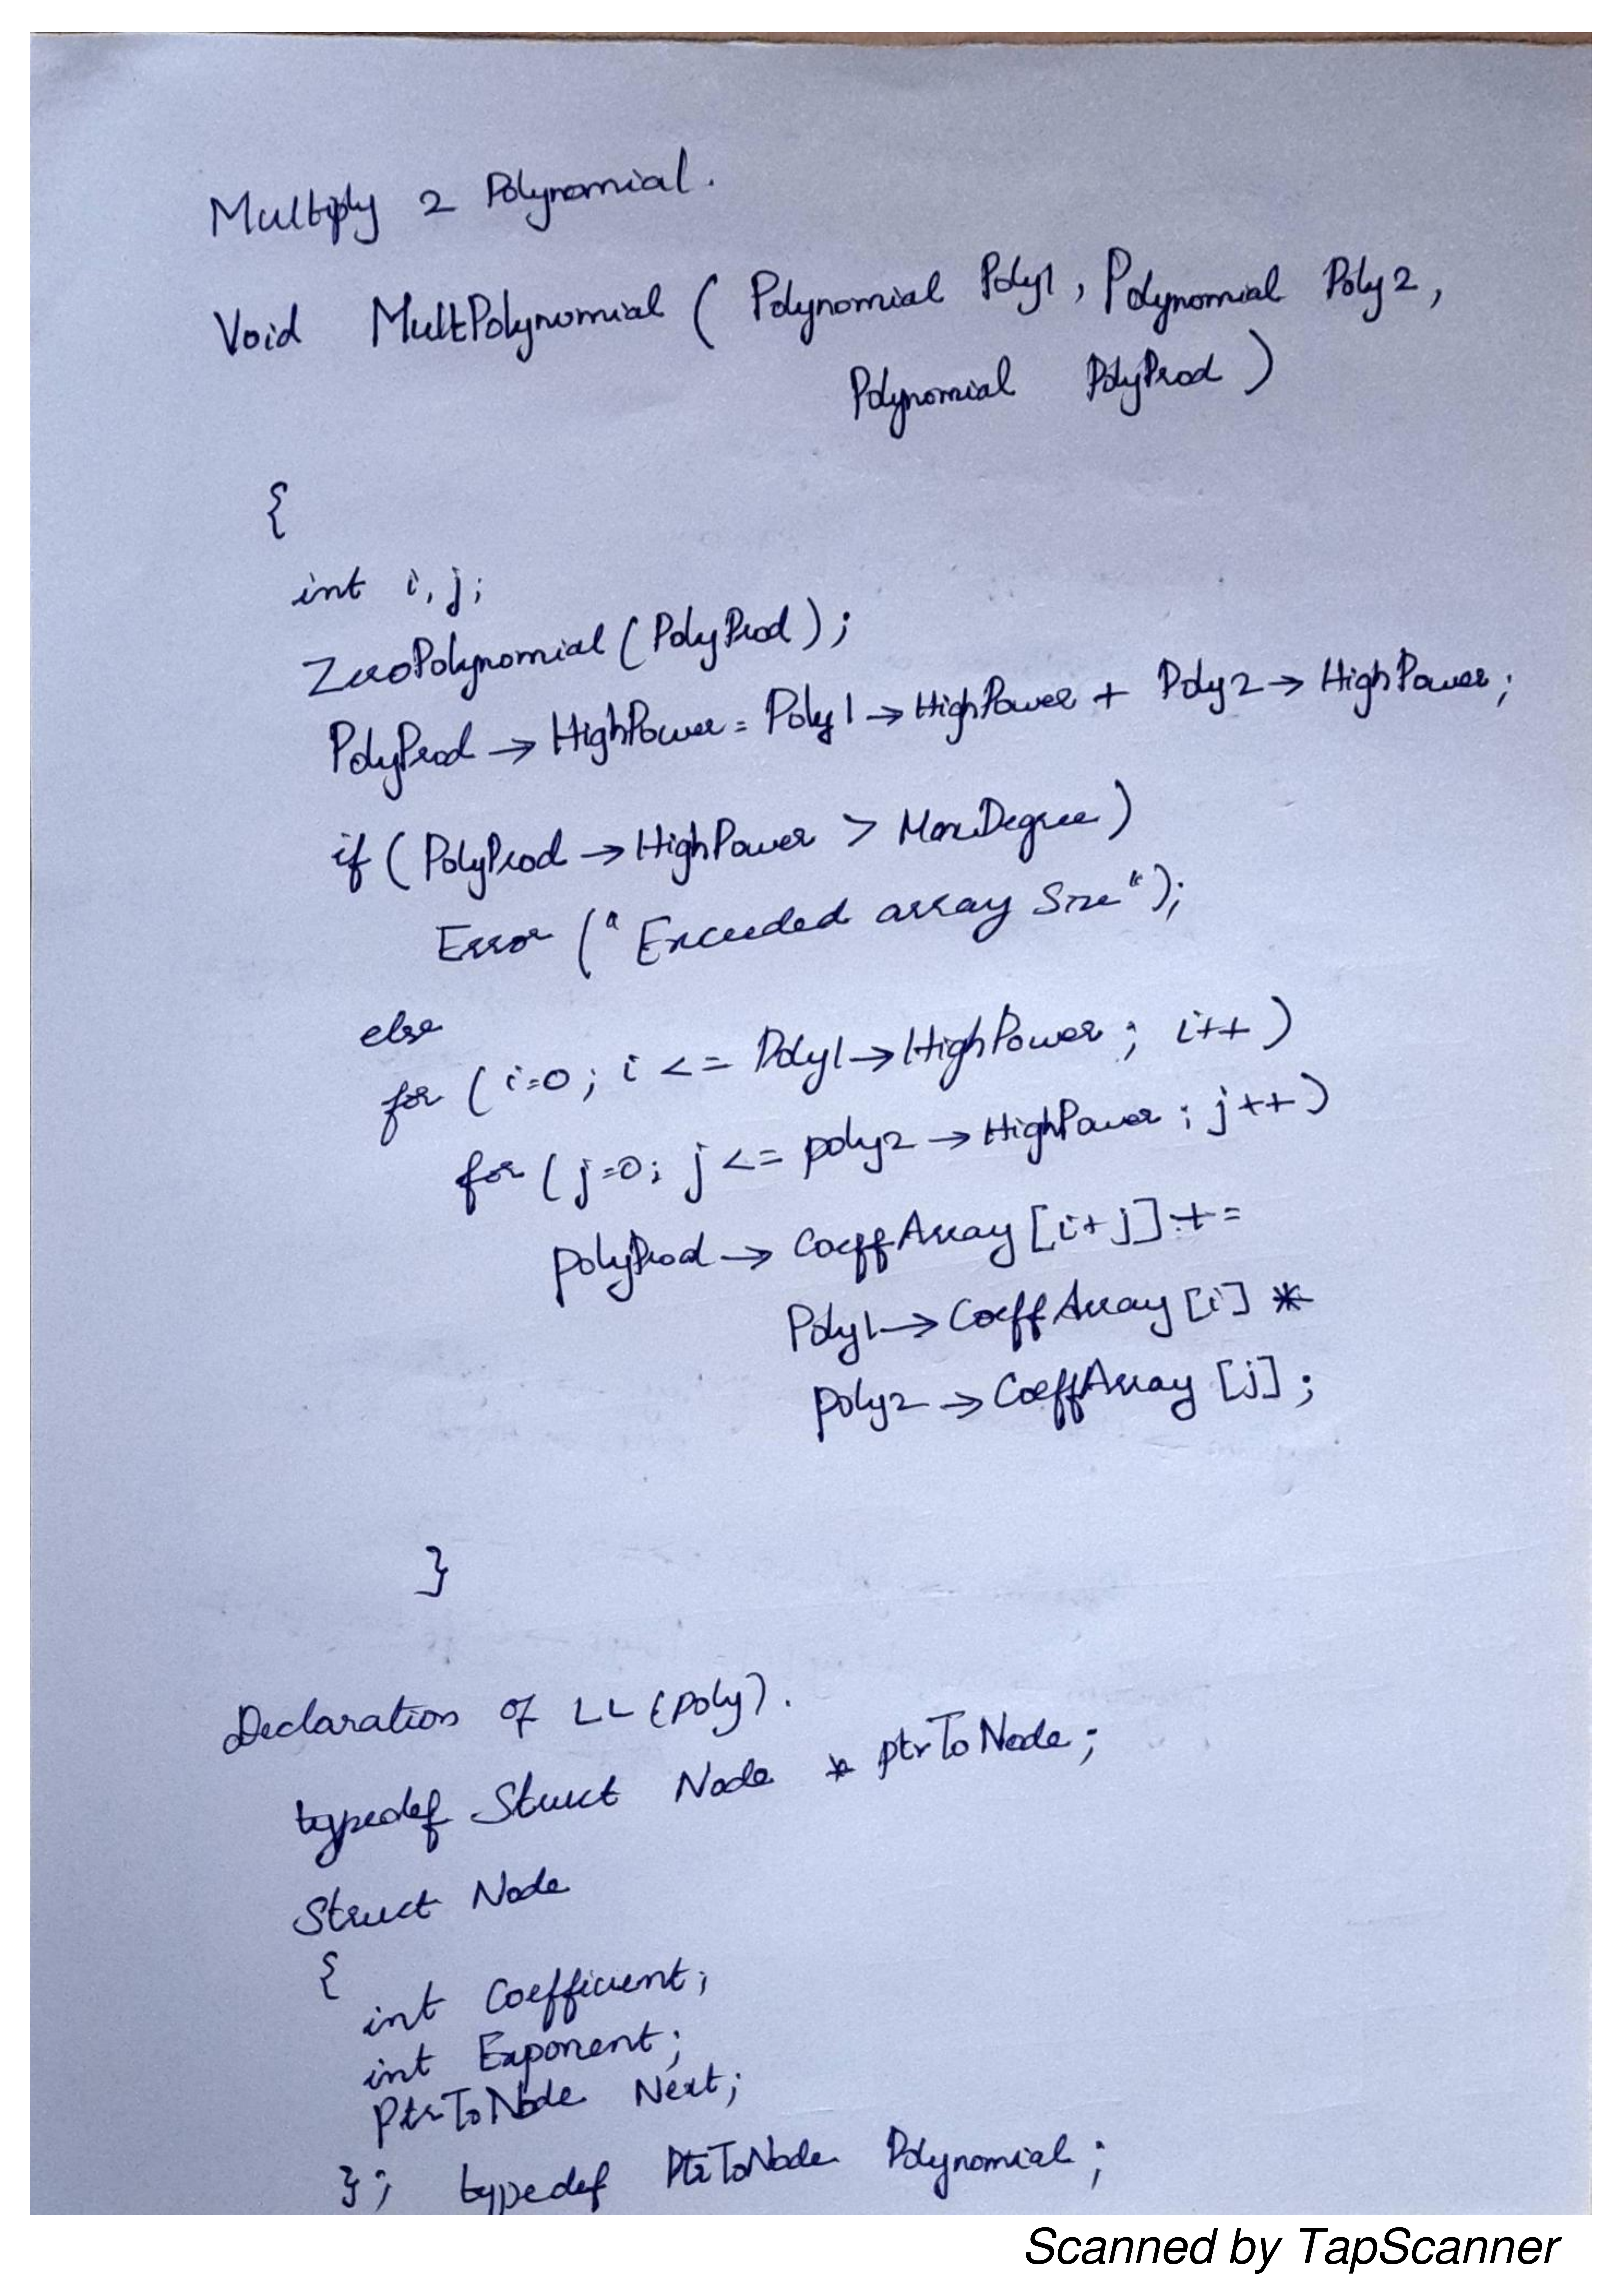 Multiply 2 Polynomial.
Void MultPolynomial ( Polynomial Poly1, Polynomial Poly2,
Polynomial PolyProd )
{
int i, j;
ZeroPolynomial ( PolyProd );
PolyProd → HighPower = Poly1 → HighPower + Poly2 → HighPower;
if ( PolyProd → HighPower > MaxDegree )
Error ( "Exceeded array Size" );
else
for ( i=0; i <= Poly1 → HighPower ; i++ )
for ( j=0; j <= poly2 → HighPower ; j++ )
polyProd → CoeffArray [i+j] +=
Poly1 → CoeffArray [i] *
poly2 → CoeffArray [j] ;
}
Declaration of LL (poly).
typedef Struct Node * ptrToNode;
Struct Node
{
int Coefficient;
int Exponent;
PtrToNode Next;
}; typedef PtrToNode Polynomial;
Scanned by TapScanner